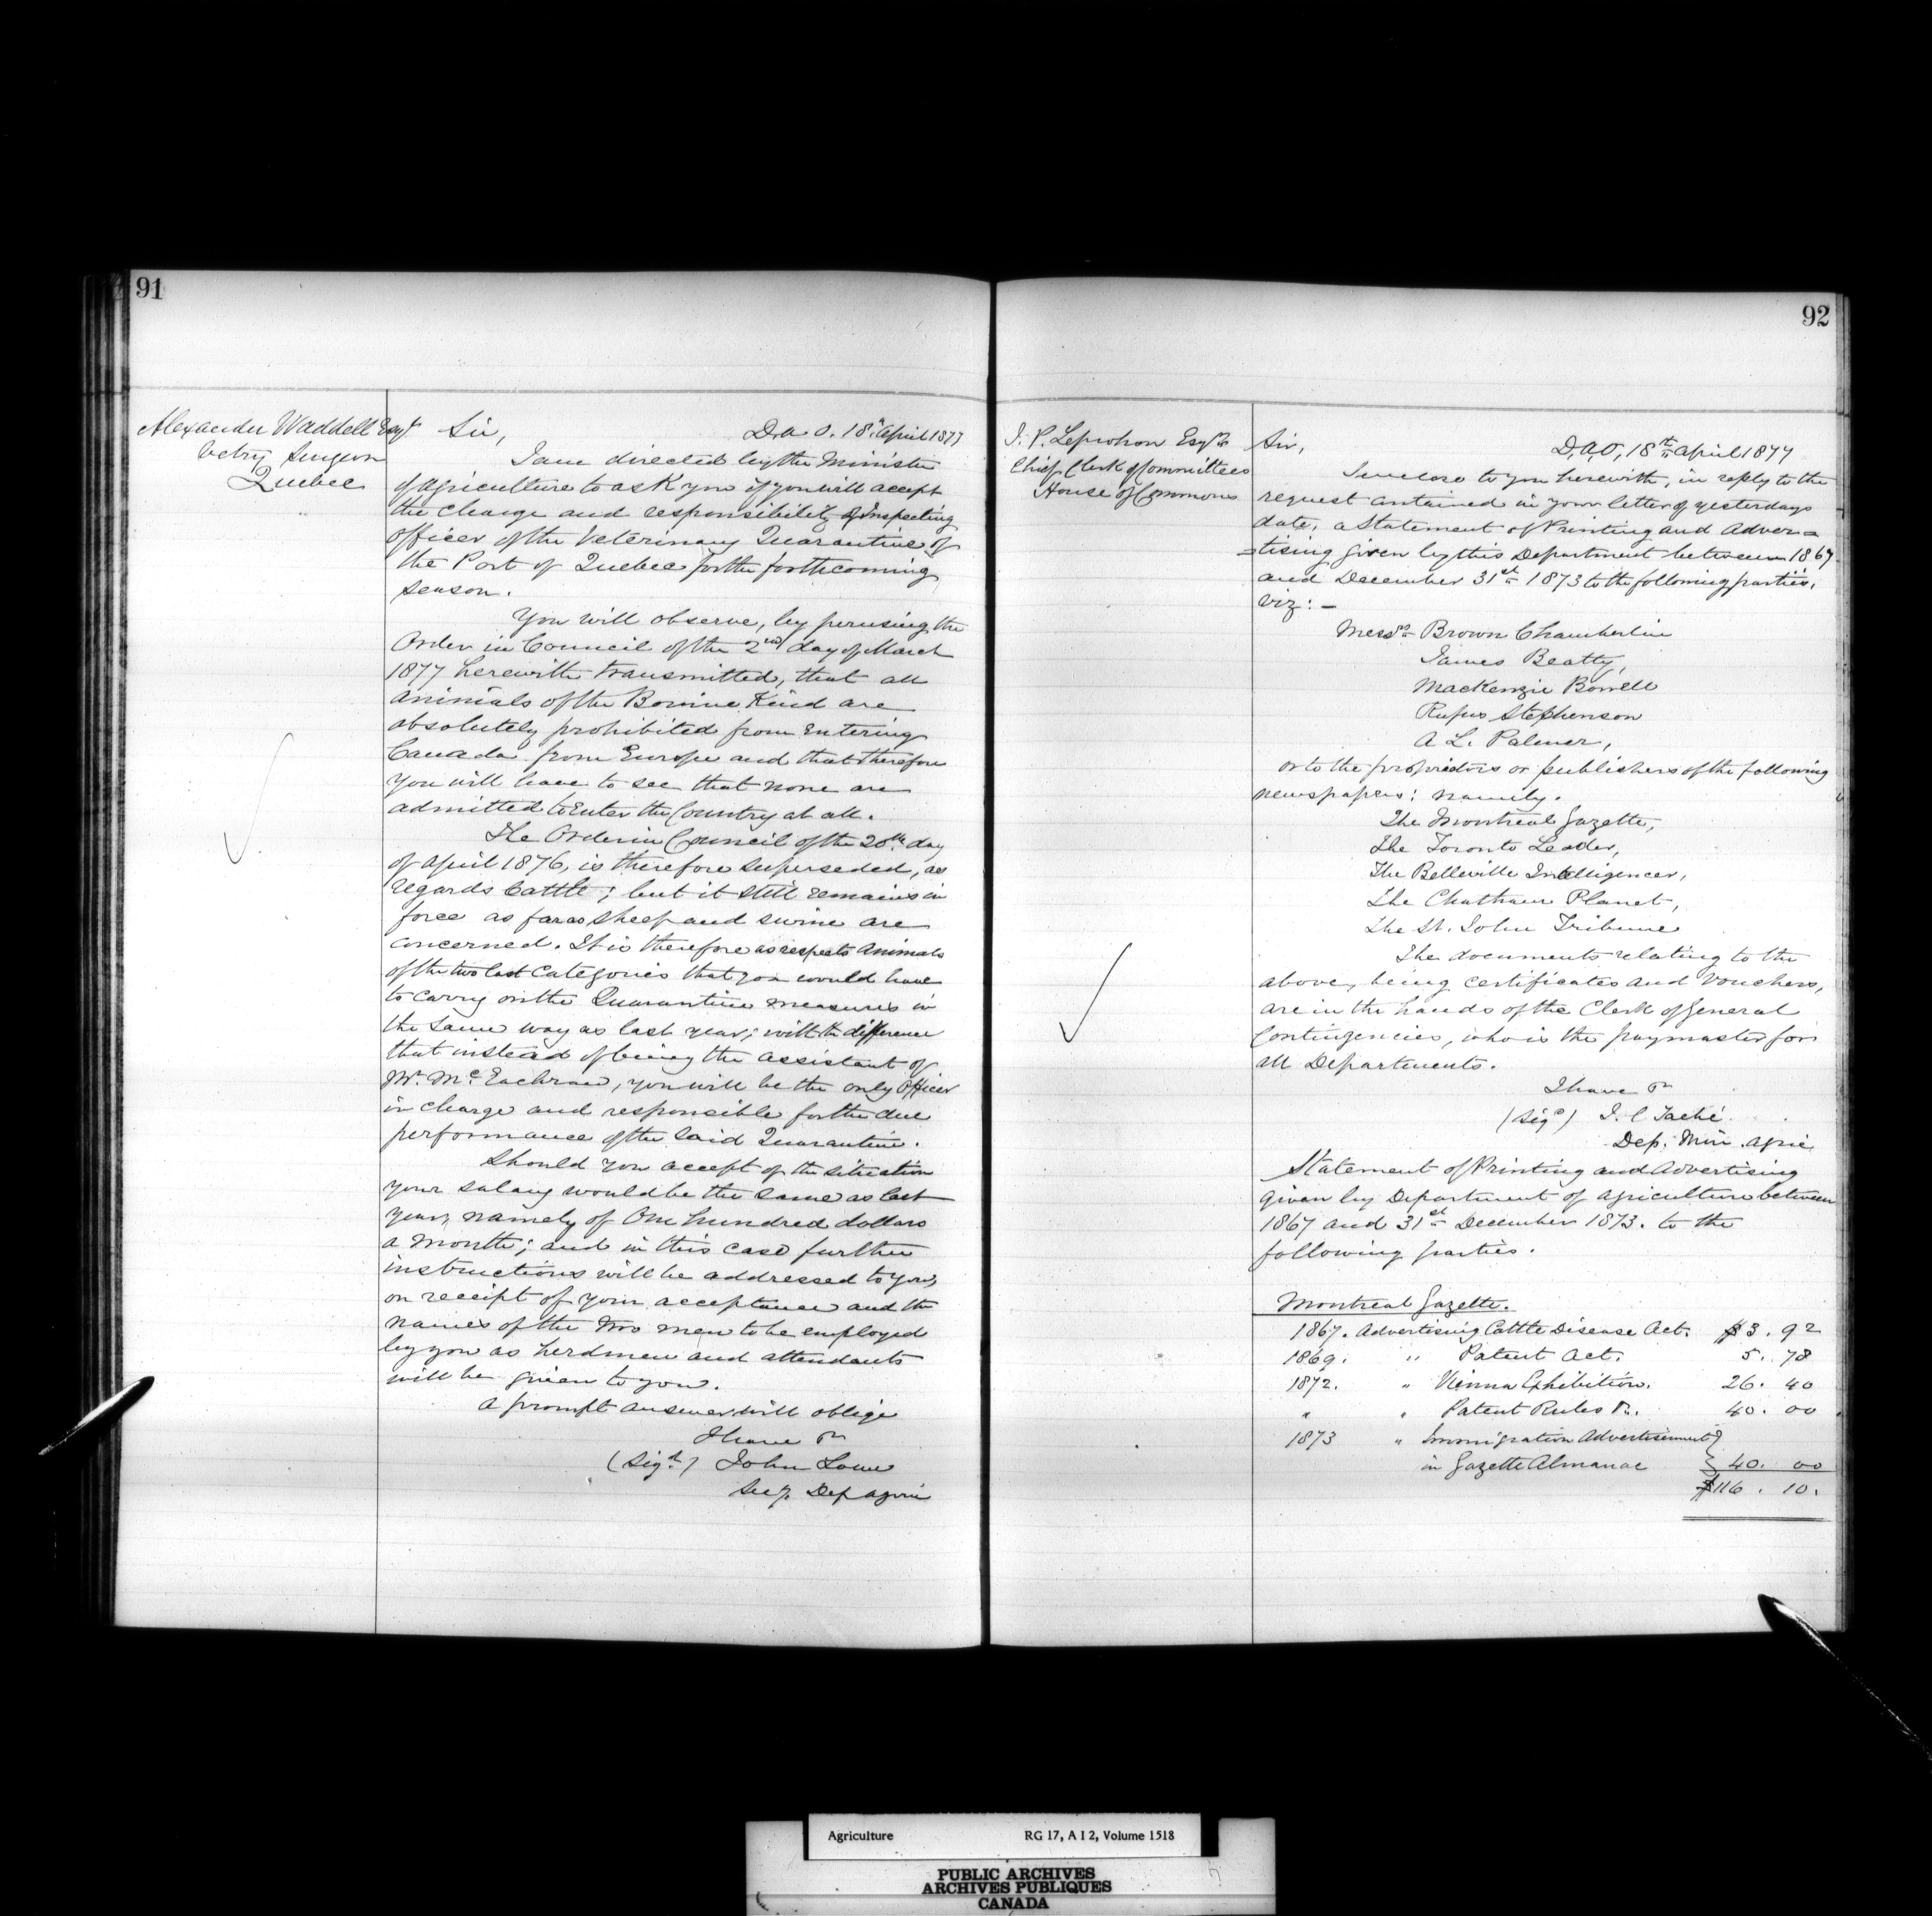 91
Alexander Waddell Esqr
Vetry Surgeon
Quebec
Sir,
D.A.O. 18th April 1877
I am directed by the Minister
of Agriculture to ask you if you will accept
the charge and responsibility of Inspecting
officer of the Veterinary Quarantine of
the Port of Quebec for the forthcoming
season.
You will observe, by perusing the
Order in Council of the 2nd day of March
1877 herewith transmitted, that all
animals of the Bovine Kind are
absolutely prohibited from entering
Canada from Europe and that therefore
you will have to see that none are
admitted to enter the Country at all.
The Order in Council of the 20th day
of April 1876, is therefore superseded, as
regards Cattle; but it still remains in
force as far as sheep and swine are
concerned. It is therefore as respects animals
of the two last categories that you would have
to carry on the Quarantine measures in
the same way as last year; with the difference
that instead of being the assistant of
Mr. McEachran, you will be the only officer
in charge and responsible for the due
performance of the said Quarantine.
Should you accept of the situation
your salary would be the same as last
year, namely of One hundred dollars
a month; and in this case further
instructions will be addressed to you,
on receipt of your acceptance and the
names of the two men to be employed
by you as herdmen and attendants
will be given to you.
A prompt answer will oblige
I have &c
(Sigd.) John Lowe
Secy. Dep Agric
92
J. P. Leprohon Esqre
Chief Clerk of Committees
House of Commons
Sir,
D.A.O, 18th April 1877
I enclose to you herewith, in reply to the
request contained in your letter of yesterdays
date, a Statement of Printing and Adver=
=tising given by this Department between 1867
and December 31st 1873 to the following parties,
viz: —
Messrs Brown Chamberlin
James Beatty,
MacKenzie Bowell
Rufus Stephenson
A L. Palmer,
or to the proprietors or publishers of the following
newspapers: namely.
The Montreal Gazette,
The Toronto Leader,
The Belleville Intelligencer,
The Chatham Planet,
The St. John Tribune
The documents relating to the
above, being certificates and vouchers,
are in the hands of the Clerk of General
Contingencies, who is the paymaster for
all Departments.
I have &c
(Sigd) J. C Taché
Dep. Min. Agric
Statement of Printing and Advertising
given by Department of Agriculture between
1867 and 31st December 1873. to the
following parties.
Montreal Gazette.
1867. Advertising Cattle Disease Act. $3.92
1869. " Patent Act. 5.78
1872. " Vienna Exhibition. 26.40
" " Patent Rules &c. 40.00
1873 " Immigration Advertisement }
in Gazette Almanac } 40.00
$116.10.
Agriculture RG 17, A I 2, Volume 1518
PUBLIC ARCHIVES
ARCHIVES PUBLIQUES
CANADA